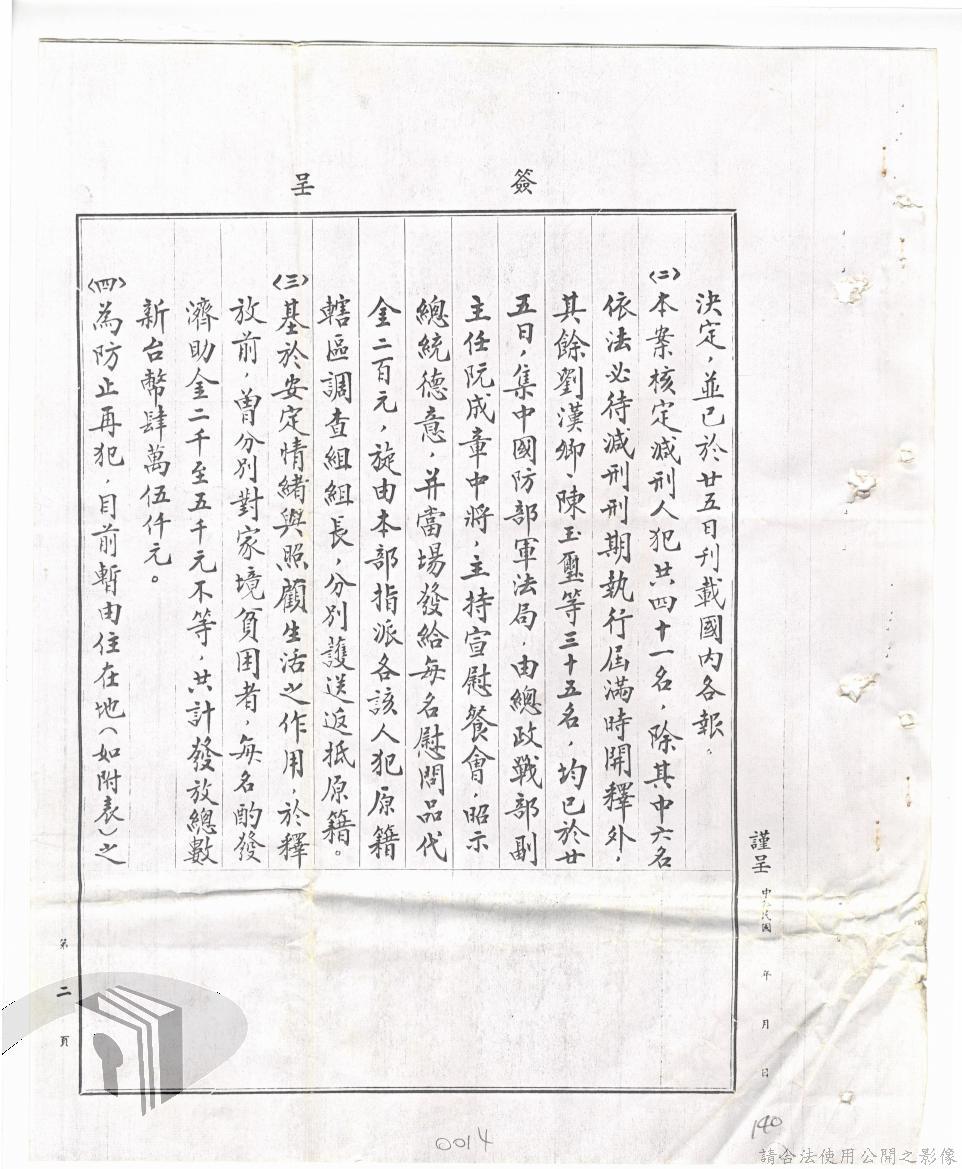 簽呈
決定，並已於廿五日刊載國內各報。
㈡本案核定減刑人犯共四十一名，除其中六名
依法必待減刑刑期執行屆滿時開釋外，
其餘劉漢卿、陳玉璽等三十五名，均已於廿
五日，集中國防部軍法局，由總政戰部副
主任阮成章中將，主持宣慰餐會，昭示
總統德意，并當場發給每名慰問品代
金二百元，旋由本部指派各該人犯原籍
轄區調查組組長，分別護送返抵原籍。
㈢基於安定情緒與照顧生活之作用，於釋
放前，曾分別對家境貧困者，每名酌發
濟助金二千至五千元不等，共計發放總數
新台幣肆萬伍仟元。
㈣為防止再犯，目前暫由住在地（如附表）之
謹呈 中華民國 年 月 日
第二頁
0014
140
請合法使用公開之影像